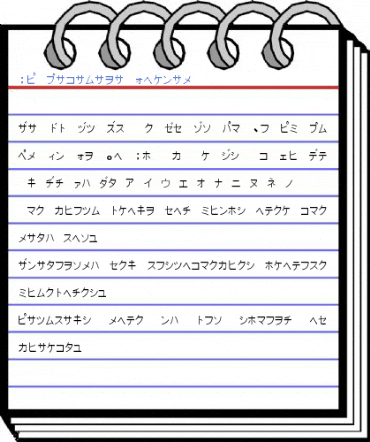 :ピ プサコサムサヲサ ォヘケンサメ
ザサ ドト ヅツ ズス ク ゼセ ゾソ パマ 、フ ピミ プム
ペメ ィン ォヲ 。ヘ :ホ カ ケ ジシ コ ェヒ デテ
キ ヂチ ァハ ダタ ア イ ウ エ オ ナ ニ ヌ ネ ノ
マク カヒフツム トケヘキヲ セヘチ ミヒンホシ ヘテクケ コマク
メサタハ スヘソユ
ザンサタフヲソメハ セクキ スフシツヘコマクカヒクシ ホケヘテフスク
ミヒムクトヘチクシュ
ピサツムスサキシ メヘテク ンハ トフソ シホマフヲチ ヘセ
カヒサケコタュ